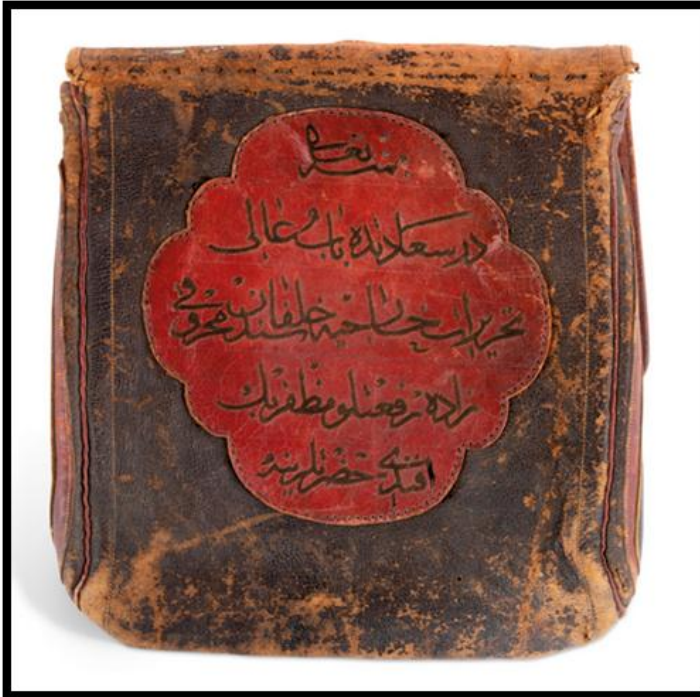 بمنه تعالی
در سعادتده باب عالی
تحریرات خارجیه خلفاسندن
زاده رفعتلو مظفر بك
افندی حضرتلرینه